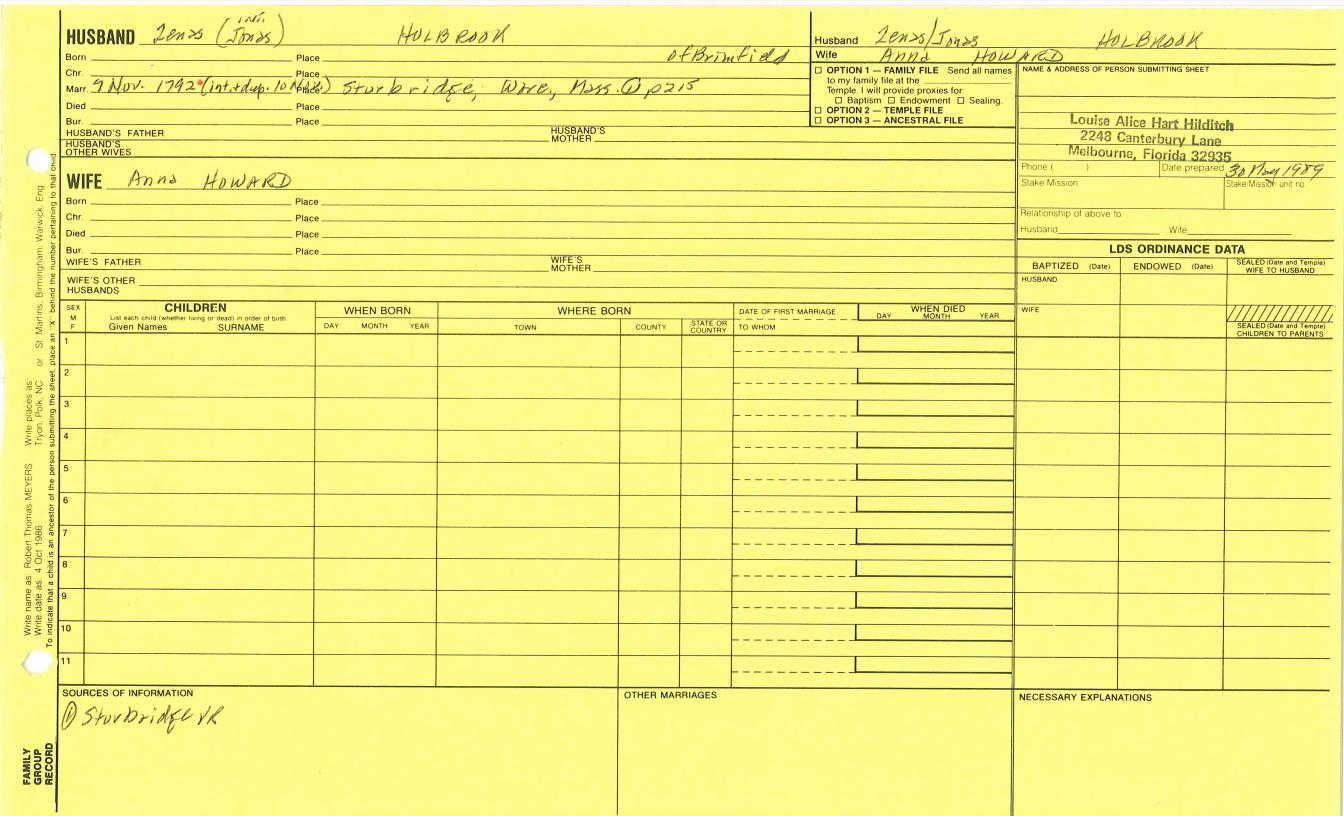 HUSBAND Zenas (int. Jonas) HOLBROOK
Born Place of Brimfield
Chr. Place
Marr. 9 Nov. 1792 (int.+dup. 10 Nov.) Place Sturbridge, Worc., Mass. ① p215
Died Place
Bur. Place
HUSBAND'S FATHER HUSBAND'S MOTHER
HUSBAND'S OTHER WIVES
WIFE Anna HOWARD
Born Place
Chr. Place
Died Place
Bur. Place
WIFE'S FATHER WIFE'S MOTHER
WIFE'S OTHER HUSBANDS
Husband Zenas/Jonas HOLBROOK
Wife Anna HOWARD
☐ OPTION 1 — FAMILY FILE Send all names
to my family file at the
Temple. I will provide proxies for:
☐ Baptism ☐ Endowment ☐ Sealing.
☐ OPTION 2 — TEMPLE FILE
☐ OPTION 3 — ANCESTRAL FILE
NAME & ADDRESS OF PERSON SUBMITTING SHEET
Louise Alice Hart Hilditch
2248 Canterbury Lane
Melbourne, Florida 32935
Phone ( ) Date prepared 30 May 1989
Stake/Mission Stake/Mission unit no.
Relationship of above to
Husband Wife
LDS ORDINANCE DATA
BAPTIZED (Date) ENDOWED (Date) SEALED (Date and Temple) WIFE TO HUSBAND
HUSBAND
WIFE
SEALED (Date and Temple) CHILDREN TO PARENTS
SEX M F
CHILDREN
List each child (whether living or dead) in order of birth
Given Names SURNAME
WHEN BORN
DAY MONTH YEAR
WHERE BORN
TOWN COUNTY STATE OR COUNTRY
DATE OF FIRST MARRIAGE
TO WHOM
WHEN DIED
DAY MONTH YEAR
1
2
3
4
5
6
7
8
9
10
11
SOURCES OF INFORMATION
① Sturbridge VR
OTHER MARRIAGES
NECESSARY EXPLANATIONS
Write name as: Robert Thomas MEYERS Write places as: Tryon, Polk, NC or St Martins, Birmingham, Warwick, Eng
Write date as: 4 Oct 1986
To indicate that a child is an ancestor of the person submitting the sheet, place an "X" behind the number pertaining to that child.
FAMILY
GROUP
RECORD